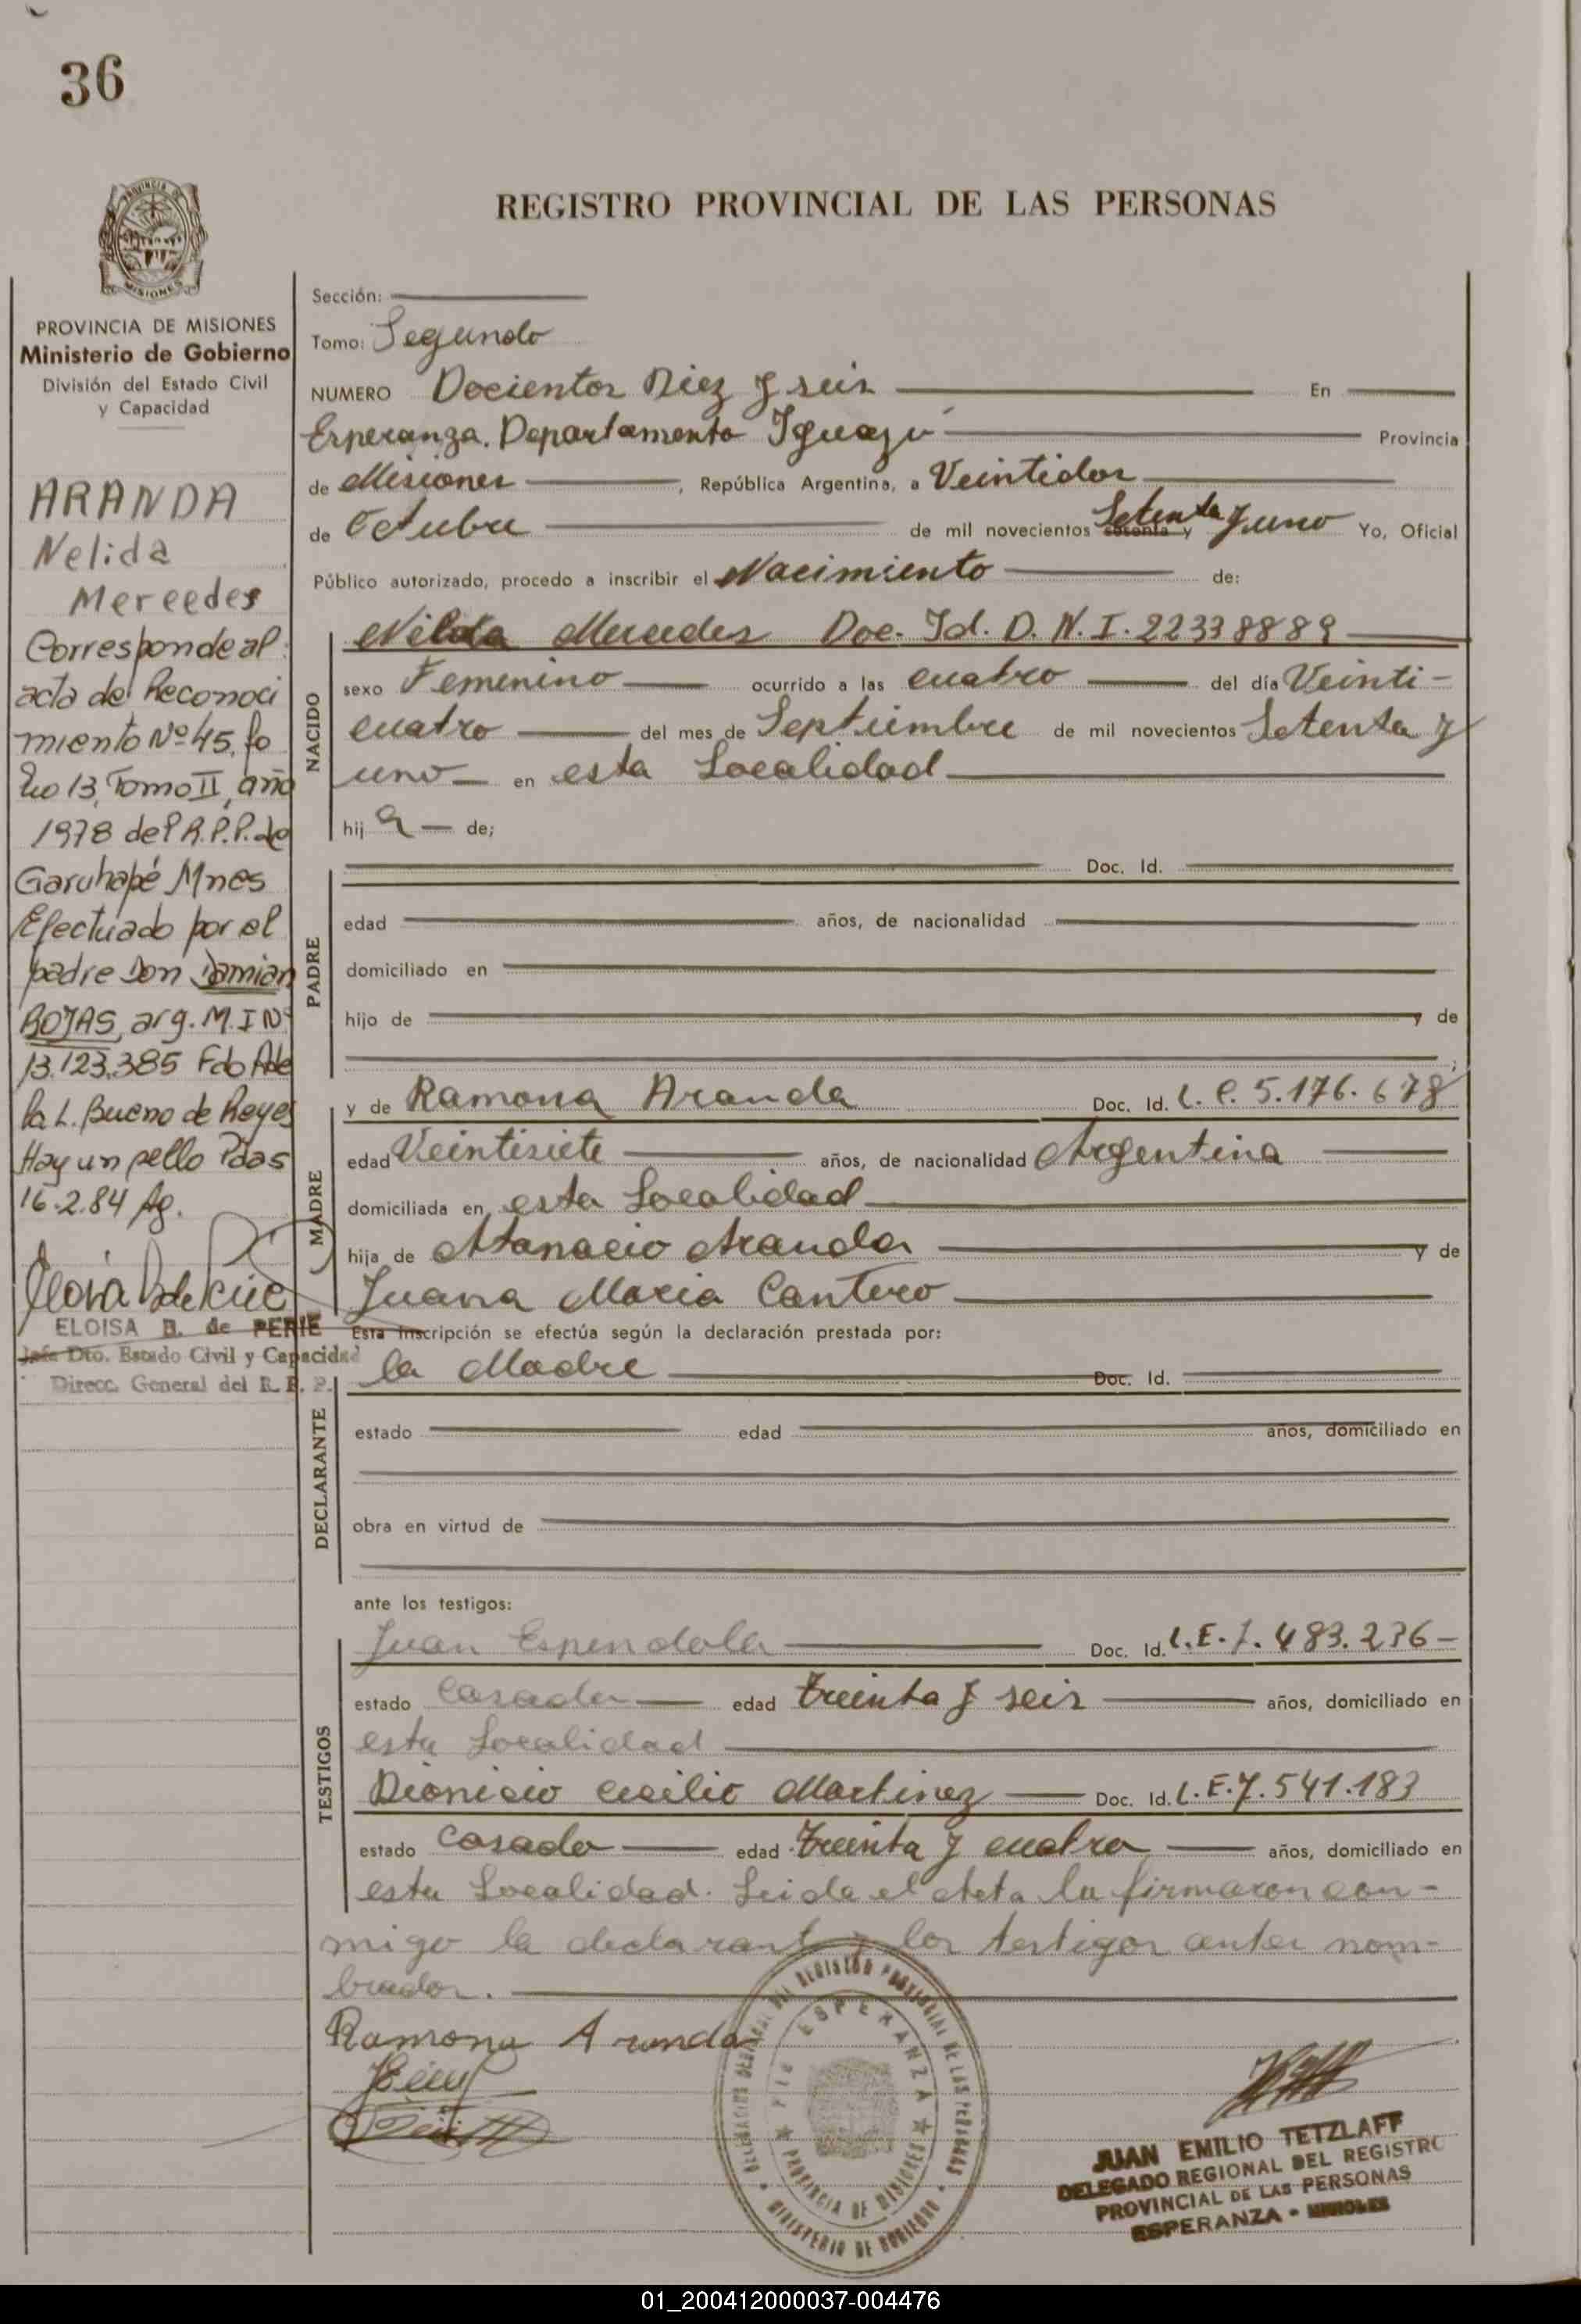 36
PROVINCIA DE MISIONES
Ministerio de Gobierno
División del Estado Civil
y Capacidad
ARANDA
Nelida
Mercedes
Corresponde al
acta de Reconoci
miento Nº 45, fo
lio 13, Tomo II, año
1978 del R.P.P. de
Garuhapé Mnes
Efectuado por el
padre Don Damian
ROJAS, arg. M.I Nº
13.123.385 Fdo Ade
la L. Bueno de Reyes
Hay un sello Pdas
16.2.84 Ag.
ELOISA B. de PERIE
Jefa Dto. Estado Civil y Capacidad
Direcc. General del R. P. P.
REGISTRO PROVINCIAL DE LAS PERSONAS
Sección:
Tomo: Segundo
NUMERO Docientos Diez y seis En
Esperanza. Departamento Iguazú Provincia
de Misiones, República Argentina, a Veintidos
de Octubre de mil novecientos sesenta y Setenta y uno Yo, Oficial
Público autorizado, procedo a inscribir el Nacimiento de:
NACIDO
Nélida Mercedes Doc. Id. D.N.I. 22338889
sexo Femenino ocurrido a las cuatro del día Veinti-
cuatro del mes de Septiembre de mil novecientos Setenta y
uno en esta Localidad
hij a de;
PADRE
Doc. Id.
edad años, de nacionalidad
domiciliado en
hijo de y de
MADRE
y de Ramona Aranda Doc. Id. L.C. 5.176.678
edad Veintisiete años, de nacionalidad Argentina
domiciliada en esta Localidad
hija de Atanacio Aranda y de
Juana Maria Cantero
Esta inscripción se efectúa según la declaración prestada por:
DECLARANTE
la Madre Doc. Id.
estado edad años, domiciliado en
obra en virtud de
ante los testigos:
TESTIGOS
Juan Espindola Doc. Id. L.E. 7.483.236-
estado Casado edad treinta y seis años, domiciliado en
esta Localidad
Dionicio Martinez Doc. Id. L.E. 7.541.183
estado casado edad treinta y cuatro años, domiciliado en
esta Localidad. Leida el Acta la firmaron con-
migo la declarante y los testigos antes nom-
brados.
Ramona Aranda
DELEGACION REGIONAL DEL REGISTRO PROVINCIAL DE LAS PERSONAS
ESPERANZA
PROVINCIA DE MISIONES
MINISTERIO DE GOBIERNO
JUAN EMILIO TETZLAFF
DELEGADO REGIONAL DEL REGISTRO
PROVINCIAL DE LAS PERSONAS
ESPERANZA - MISIONES
01_200412000037-004476